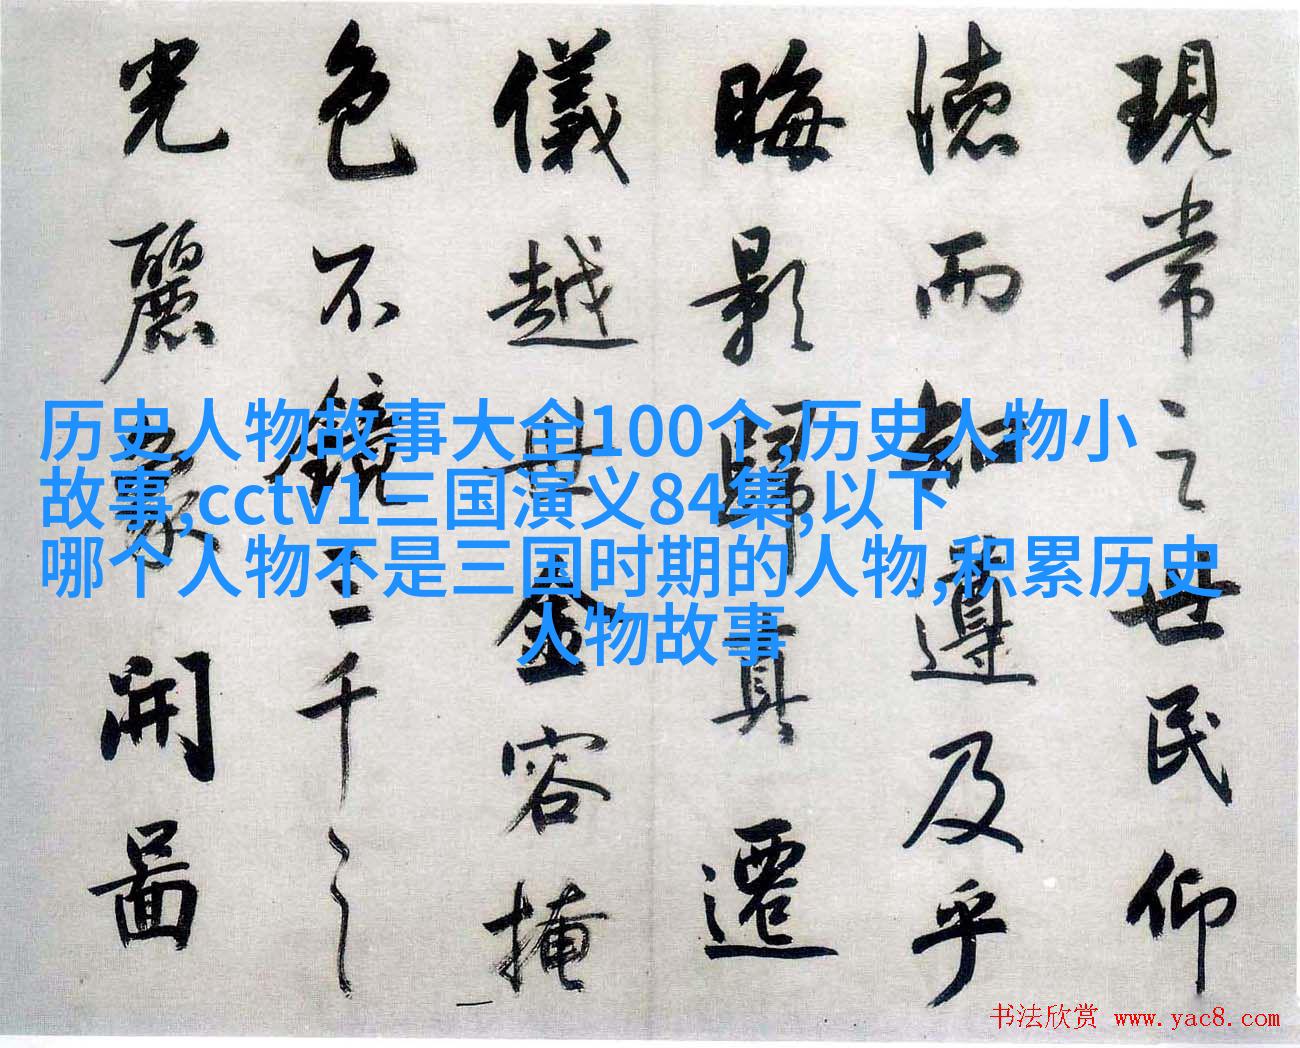 現常之世民仰
德而知遵及乎
晦影歸真遷
儀越世金容掩
色不鏡三千之
光麗象開圖
历史人物故事大全100个,历史人物小
故事,cctv1三国演义84集,以下
哪个人物不是三国时期的人物,积累历史
人物故事
书法欣赏 www.yac8.com